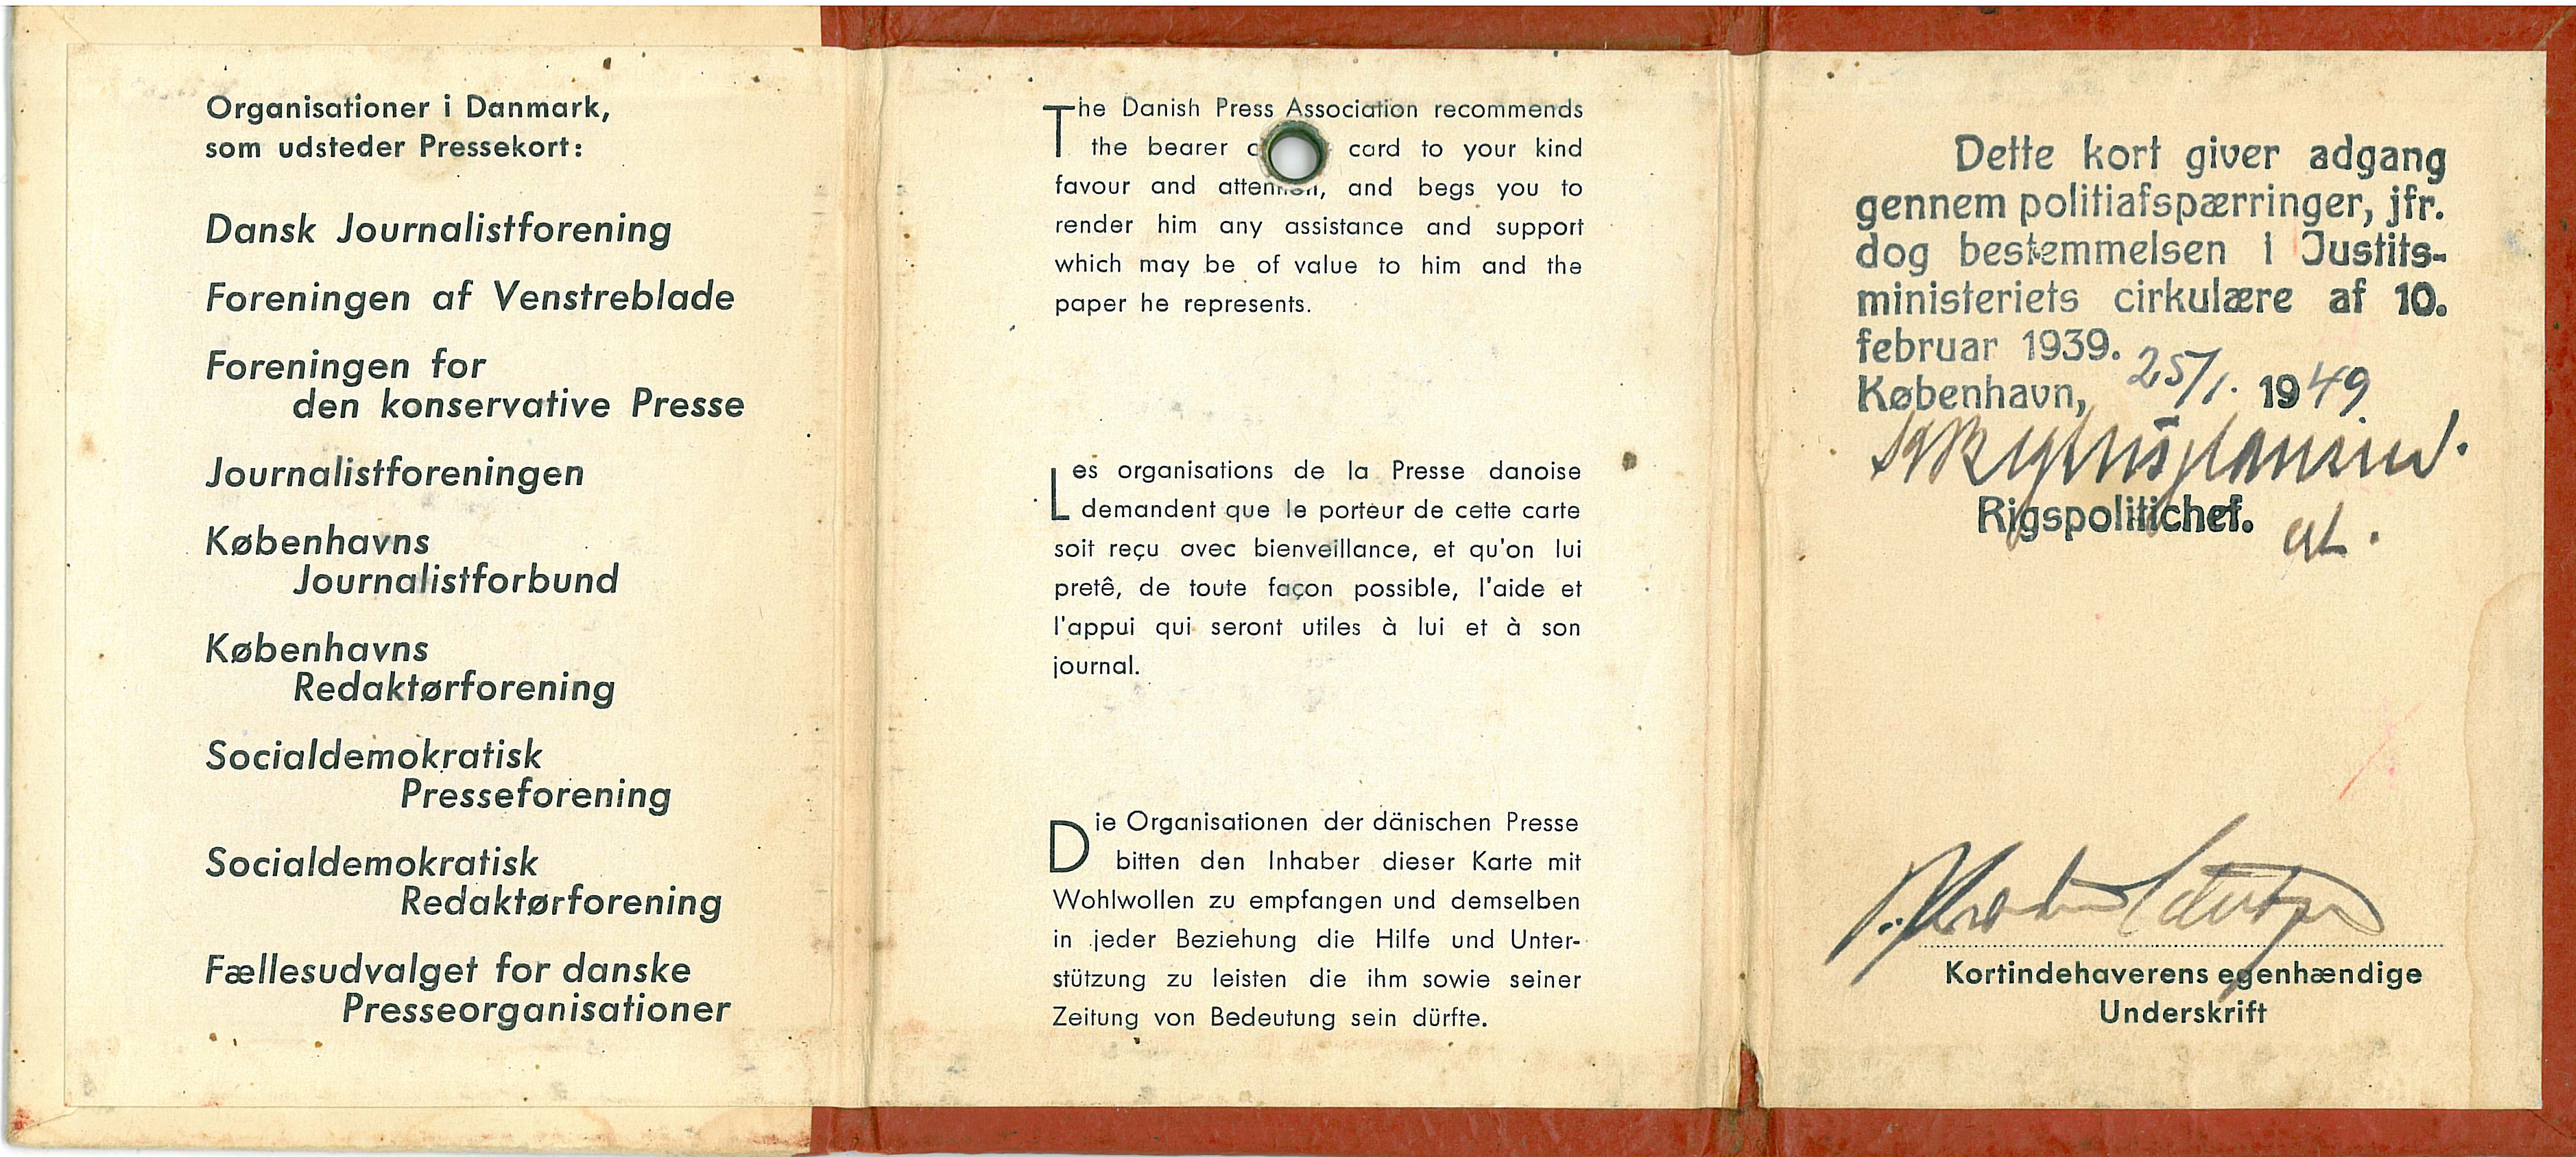 Organisationer i Danmark,
som udsteder Pressekort:
Dansk Journalistforening
Foreningen af Venstreblade
Foreningen for
den konservative Presse
Journalistforeningen
Københavns
Journalistforbund
Københavns
Redaktørforening
Socialdemokratisk
Presseforening
Socialdemokratisk
Redaktørforening
Fællesudvalget for danske
Presseorganisationer
The Danish Press Association recommends
the bearer card to your kind
favour and attention, and begs you to
render him any assistance and support
which may be of value to him and the
paper he represents.
Les organisations de la Presse danoise
demandent que le porteur de cette carte
soit reçu avec bienveillance, et qu'on lui
pretê, de toute façon possible, l'aide et
l'appui qui seront utiles à lui et à son
journal.
Die Organisationen der dänischen Presse
bitten den Inhaber dieser Karte mit
Wohlwollen zu empfangen und demselben
in jeder Beziehung die Hilfe und Unter-
stützung zu leisten die ihm sowie seiner
Zeitung von Bedeutung sein dürfte.
Dette kort giver adgang
gennem politiafspærringer, jfr.
dog bestemmelsen i Justits-
ministeriets cirkulære af 10.
februar 1939.
København, 25/1. 1949
Rigspolitichef.
Kortindehaverens egenhændige
Underskrift